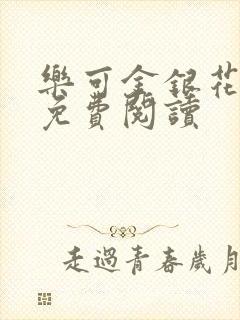 樂可金銀花
免費閱讀
走過青春歲月